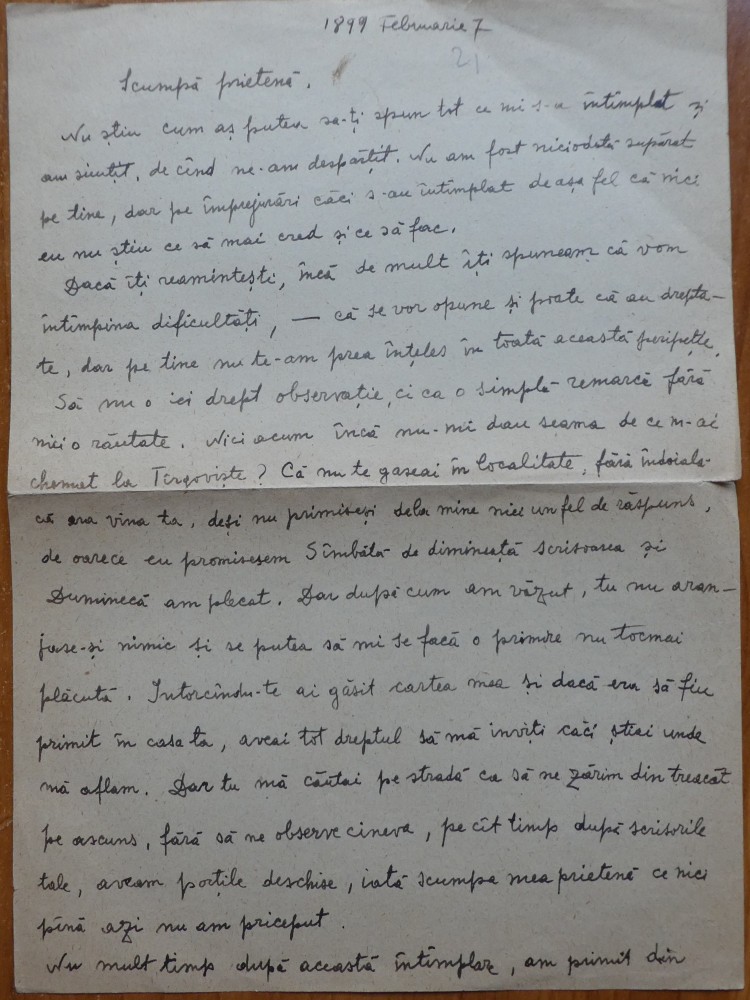 1899 Februarie 7
21
Scumpă prietenă.
Nu știu cum aș putea sa-ți spun tot ce mi s-a întîmplat și
am simțit, de cînd ne-am despărțit. Nu am fost niciodată supărat
pe tine, dar pe împrejurări căci s-au întîmplat de așa fel că nici
eu nu știu ce să mai cred și ce să fac.
Dacă îți reamintești, încă de mult îți spuneam că vom
întîmpina dificultăți, — că se vor opune și poate că au drepta-
te, dar pe tine nu te-am prea înțeles în toată această peripeție.
Să nu o iei drept observație, ci ca o simplă remarcă fără
nici o răutate. Nici acum încă nu-mi dau seama de ce m-ai
chemat la Tîrgoviște? Că nu te gaseai în localitate, fără îndoiala-
că era vina ta, deși nu primiseși dela mine nici un fel de răspuns,
de oarece eu promisesem Sîmbătă de dimineață scrisoarea și
Duminecă am plecat. Dar după cum am văzut, tu nu aran-
jase-și nimic și se putea să mi se facă o primire nu tocmai
plăcută. Intorcîndu-te ai găsit cartea mea și dacă era să fiu
primit în casa ta, aveai tot dreptul să mă inviți căci știai unde
mă aflam. Dar tu mă căutai pe stradă ca să ne zărim din treacăt
pe ascuns, fără să ne observe cineva, pe cît timp după scrisorile
tale, aveam porțile deschise, iată scumpa mea prietenă ce nici
pînă azi nu am priceput.
Nu mult timp după această întîmplare, am primit din